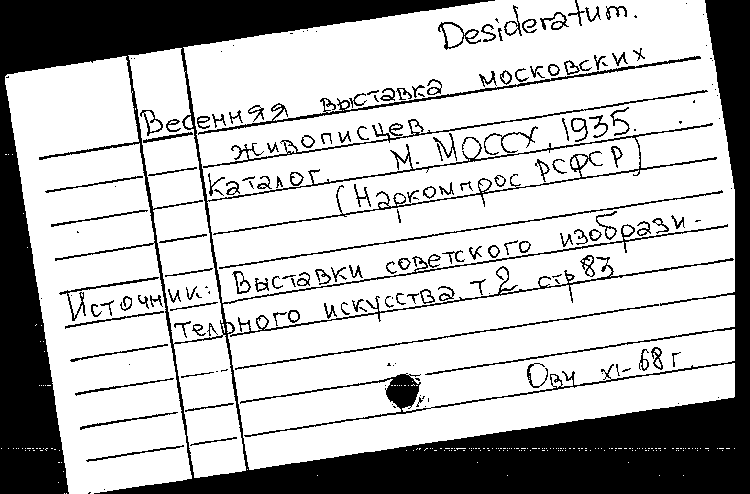 Desideratum.
Весенняя выставка московских
живописцев.
Каталог. М., МОССХ, 1935.
(Наркомпрос РСФСР)
Источник: Выставки советского изобрази-
тельного искусства. т 2. стр 83
XI-68 г.